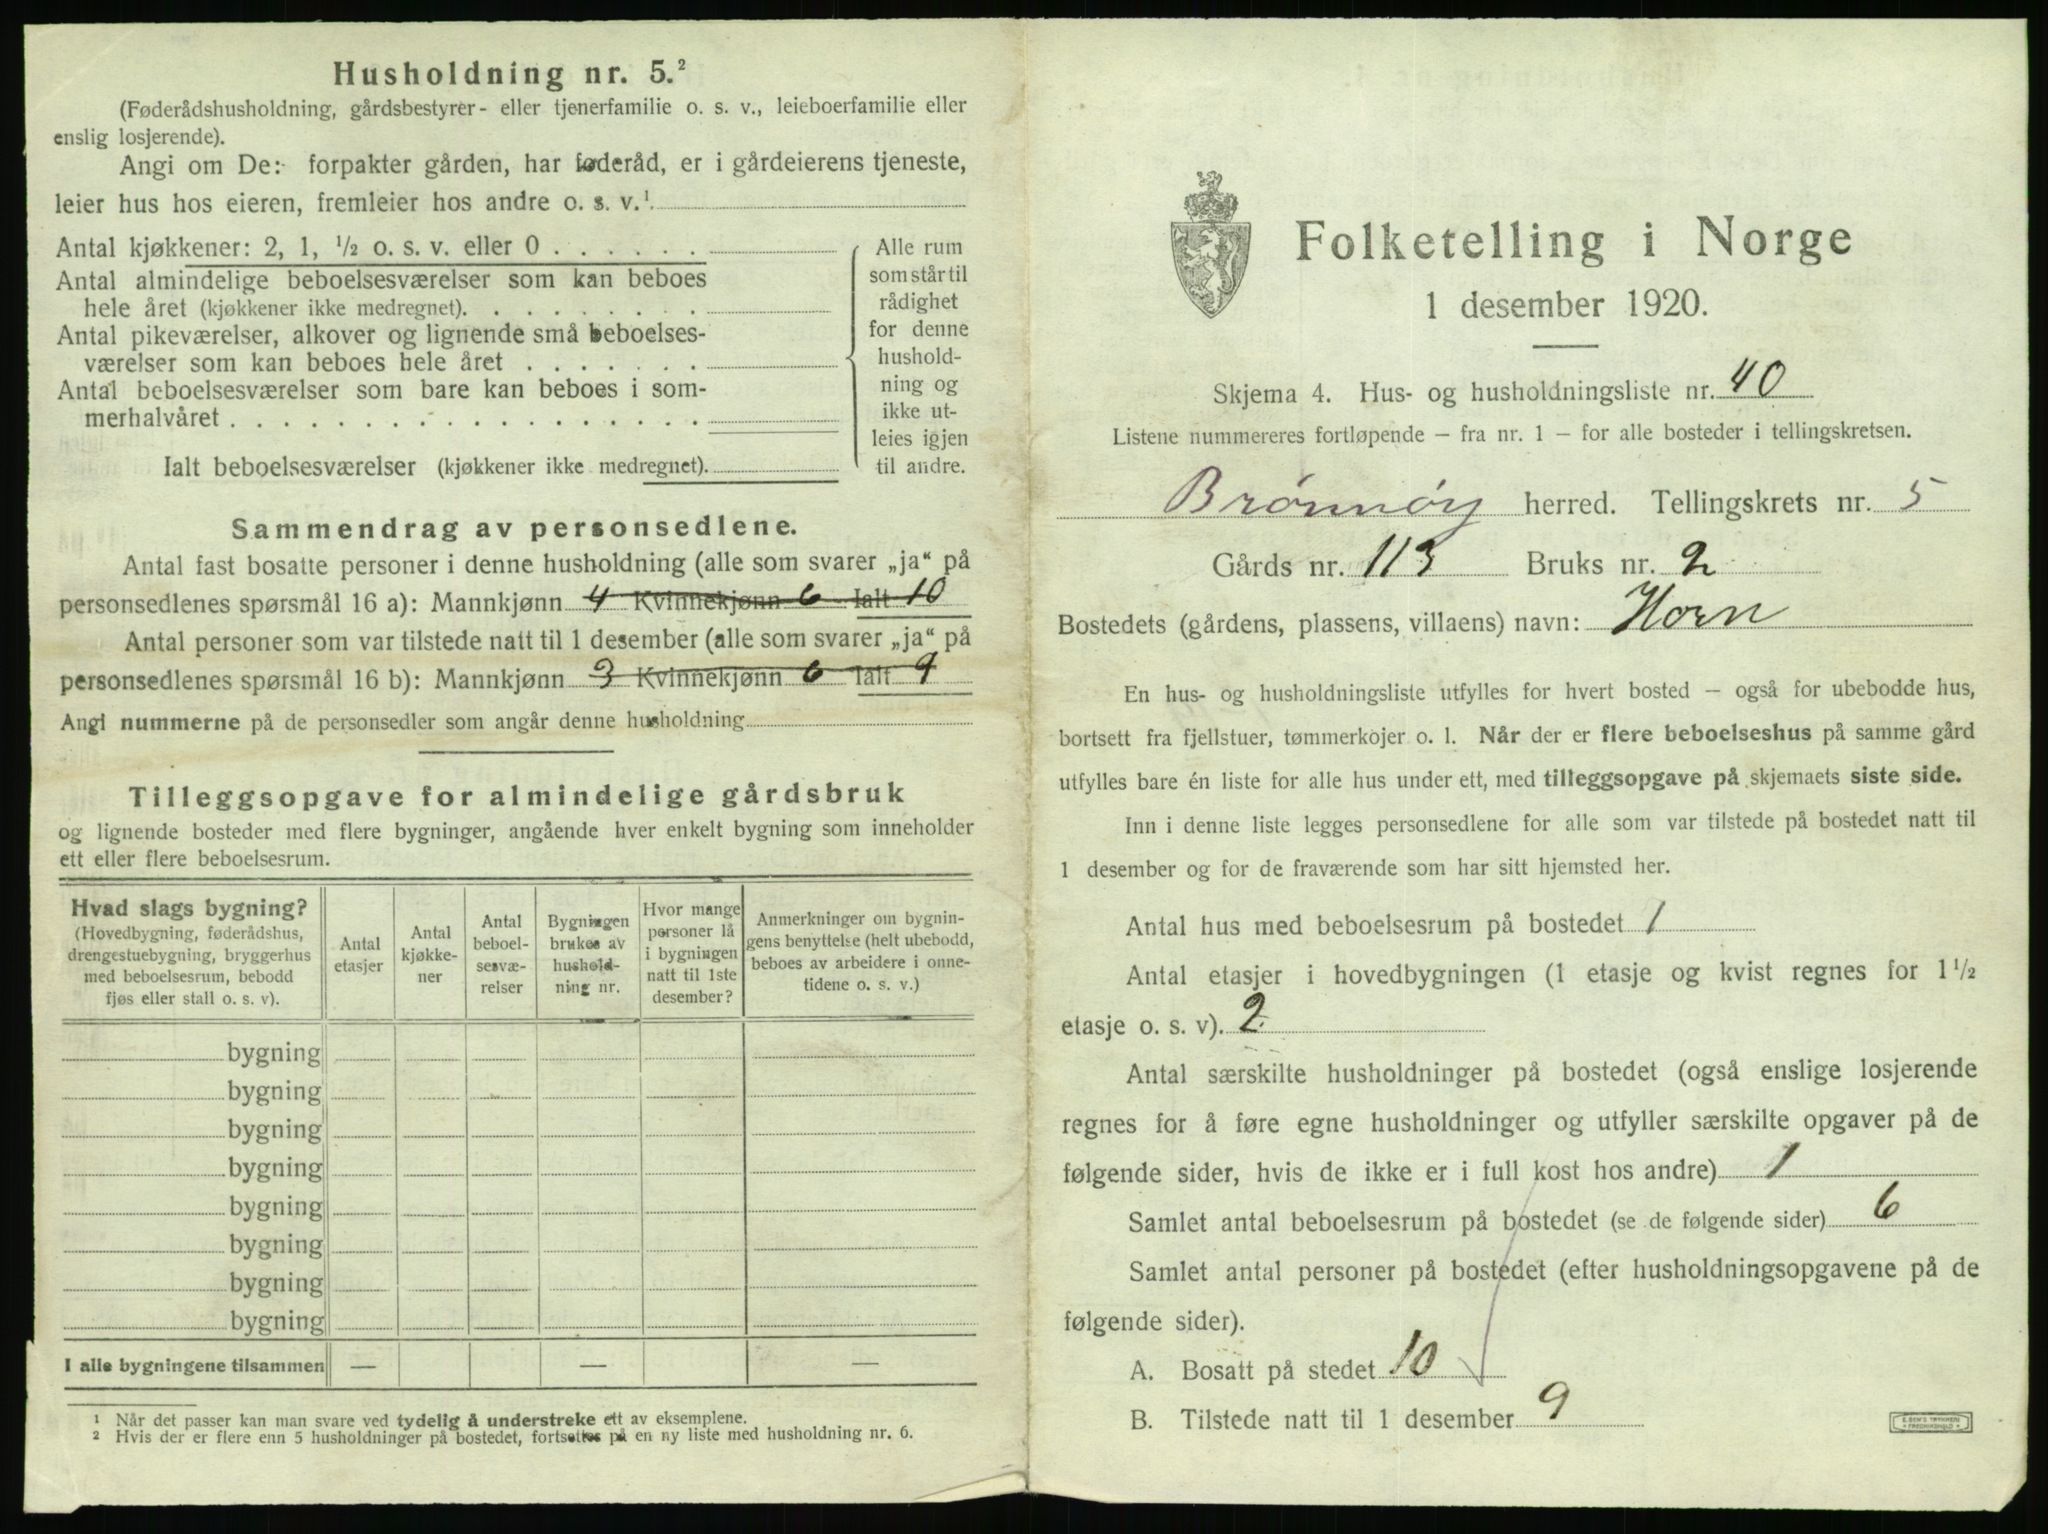 Husholdning nr. 5.²
(Føderådshusholdning, gårdsbestyrer- eller tjenerfamilie o. s. v., leieboerfamilie eller
enslig losjerende).
Angi om De: forpakter gården, har føderåd, er i gårdeierens tjeneste,
leier hus hos eieren, fremleier hos andre o. s. v.¹
Antal kjøkkener: 2, 1, ½ o. s. v. eller 0 . . . . . .
Antal almindelige beboelsesværelser som kan beboes
hele året (kjøkkener ikke medregnet). . . . . . . . .
Antal pikeværelser, alkover og lignende små beboelses-
værelser som kan beboes hele året . . . . . . .
Antal beboelsesværelser som bare kan beboes i som-
merhalvåret . . . . . . . . . . . . . . . . . .
Ialt beboelsesværelser (kjøkkener ikke medregnet).
Alle rum
som står til
rådighet
for denne
hushold-
ning og
ikke ut-
leies igjen
til andre.
Sammendrag av personsedlene.
Antal fast bosatte personer i denne husholdning (alle som svarer „ja“ på
personsedlenes spørsmål 16 a): Mannkjønn 4 Kvinnekjønn 6 Ialt 10
Antal personer som var tilstede natt til 1 desember (alle som svarer „ja“ på
personsedlenes spørsmål 16 b): Mannkjønn 3 Kvinnekjønn 6 Ialt 9
Angi nummerne på de personsedler som angår denne husholdning
Tilleggsopgave for almindelige gårdsbruk
og lignende bosteder med flere bygninger, angående hver enkelt bygning som inneholder
ett eller flere beboelsesrum.
Hvad slags bygning?
(Hovedbygning, føderådshus,
drengestuebygning, bryggerhus
med beboelsesrum, bebodd
fjøs eller stall o. s. v).
Antal
etasjer
Antal
kjøkke-
ner
Antal
beboel-
sesvæ-
relser
Bygningen
brukes av
hushold-
ning nr.
Hvor mange
personer lå
i bygningen
natt til 1ste
desember?
Anmerkninger om bygnin-
gens benyttelse (helt ubebodd,
beboes av arbeidere i onne-
tidene o. s. v.)
bygning
bygning
bygning
bygning
bygning
bygning
bygning
bygning
I alle bygningene tilsammen — — —
¹ Når det passer kan man svare ved tydelig å understreke ett av eksemplene.
² Hvis der er flere enn 5 husholdninger på bostedet, fortsettes på en ny liste med husholdning nr. 6.
Folketelling i Norge
1 desember 1920.
Skjema 4. Hus- og husholdningsliste nr. 40
Listene nummereres fortløpende – fra nr. 1 – for alle bosteder i tellingskretsen.
Brønnøy herred. Tellingskrets nr. 5
Gårds nr. 113 Bruks nr. 2
Bostedets (gårdens, plassens, villaens) navn: Horn
En hus- og husholdningsliste utfylles for hvert bosted – også for ubebodde hus,
bortsett fra fjellstuer, tømmerkojer o. l. Når der er flere beboelseshus på samme gård
utfylles bare én liste for alle hus under ett, med tilleggsopgave på skjemaets siste side.
Inn i denne liste legges personsedlene for alle som var tilstede på bostedet natt til
1 desember og for de fraværende som har sitt hjemsted her.
Antal hus med beboelsesrum på bostedet 1
Antal etasjer i hovedbygningen (1 etasje og kvist regnes for 1½
etasje o. s. v). 2
Antal særskilte husholdninger på bostedet (også enslige losjerende
regnes for å føre egne husholdninger og utfyller særskilte opgaver på de
følgende sider, hvis de ikke er i full kost hos andre) 1
Samlet antal beboelsesrum på bostedet (se de følgende sider) 6
Samlet antal personer på bostedet (efter husholdningsopgavene på de
følgende sider).
A. Bosatt på stedet 10
B. Tilstede natt til 1 desember 9